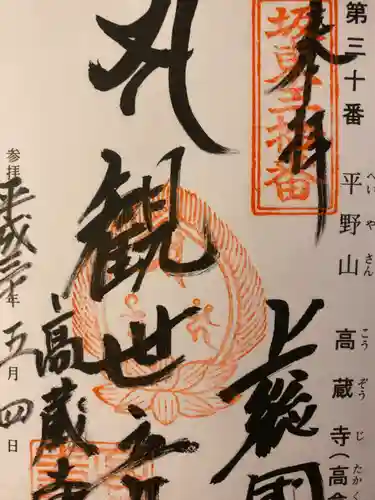 第三十番 平野山 高蔵寺(高倉
へいやさん こうぞうじ たかく
奉拝
坂東三拾番
上総国
観世音
高蔵寺
参拝 平成三十年五月四日